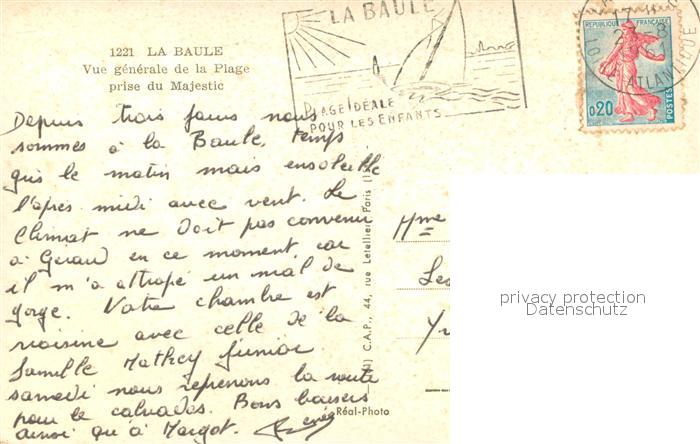 1221 LA BAULE
Vue générale de la Plage
prise du Majestic
LA BAULE
PLAGE IDÉALE
POUR LES ENFANTS
LOIRE ATLANTIQUE
REPUBLIQUE FRANÇAISE
0,20
POSTES
Depuis trois jours nous
sommes à la Baule, temps
gris le matin mais ensoleillé
l'après midi avec vent. Le
Climat ne Doit pas convenir
à Géraud en ce moment, car
il m'a attrapé un mal de
gorge. Votre chambre est
voisine avec celle de la
famille Mathey junior
samedi nous reprenons la route
pour le calvados. Bons baisers
ainsi qu'à Margot.
C.A.P., 44, rue Letellier, Paris
Réal-Photo
Mme
Les
privacy protection
Datenschutz